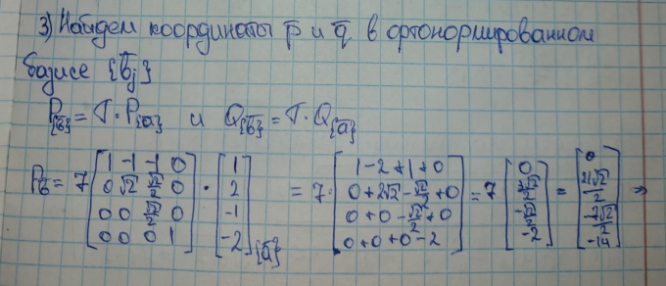 3) Найдем координаты p̅ и q̅ в ортонормированном
базисе {b̅ⱼ}
P_{b̅} = T · P_{a̅} и Q_{b̅} = T · Q_{a̅}
P_b̅ = 7 [1 -1 -1 0; 0 √2 √2/2 0; 0 0 √2/2 0; 0 0 0 1] · [1; 2; -1; -2]_{a̅} = 7 · [1-2+1+0; 0+2√2-√2/2+0; 0+0-√2/2+0; 0+0+0-2] = 7 [0; 3√2/2; -√2/2; -2] = [0; 21√2/2; -7√2/2; -14] ⇒